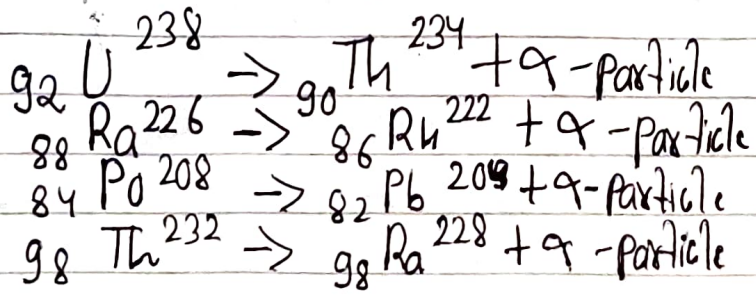 ₉₂U²³⁸ -> ₉₀Th²³⁴ + α-particle
₈₈Ra²²⁶ -> ₈₆Rn²²² + α-particle
₈₄Po²⁰⁸ -> ₈₂Pb²⁰⁴ + α-particle
₉₈Th²³² -> ₉₈Ra²²⁸ + α-particle